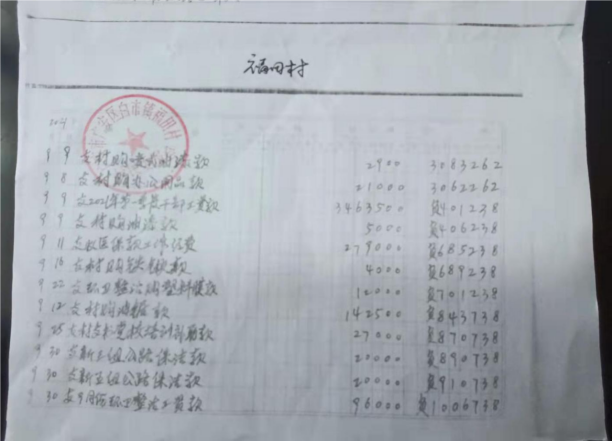 福田村
2021
9 9 支村购 款 2900 3083262
9 8 支村购办公用品款 21000 3062262
9 9 支2021年第一季度干部工资款 3463500 负401238
9 9 支村购油漆款 5000 负406238
9 11 支 医保款工作经费 279000 负685238
9 16 支村购 款 4000 负689238
9 22 支环卫整治购塑料膜款 12000 负701238
9 12 支村购 款 142500 负843738
9 25 支村支书党校培训 款 27000 负870738
9 30 支新三组公路保洁款 20000 负890738
9 30 支新五组公路保洁款 20000 负910738
9 30 支9月份环卫整治工资款 96000 负1006738